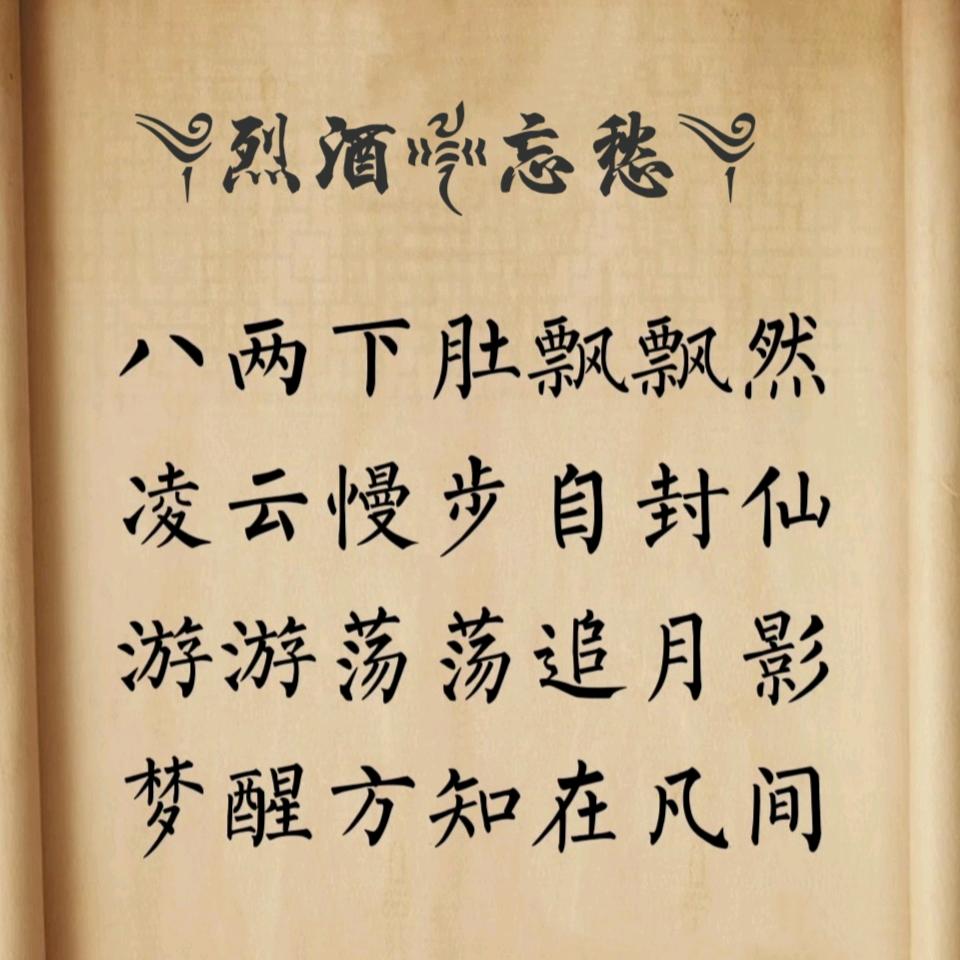 烈酒忘愁
八两下肚飘飘然
凌云慢步自封仙
游游荡荡追月影
梦醒方知在凡间